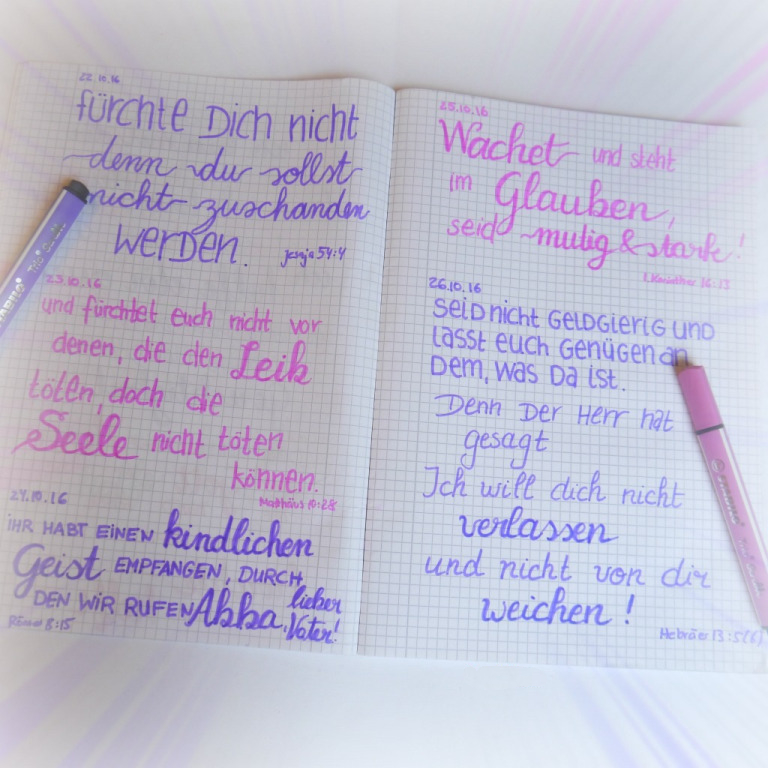 22.10.16
fürchte Dich nicht
denn du sollst
nicht zuschanden
werden. Jesaja 54:4
23.10.16
und fürchtet euch nicht vor
denen, die den Leib
töten, doch die
Seele nicht töten
können.
Matthäus 10:28
24.10.16
IHR HABT EINEN kindlichen
Geist EMPFANGEN, DURCH
DEN WIR RUFEN Abba, lieber
Vater!
Römer 8:15
25.10.16
Wachet und steht
im Glauben,
seid mutig & stark!
1. Korinther 16:13
26.10.16
Seid nicht GELDGIERIG UND
Lasst euch Genügen an
Dem, was Da ist.
Denn Der Herr hat
gesagt
Ich will dich nicht
verlassen
und nicht von dir
weichen!
Hebräer 13:5(6)